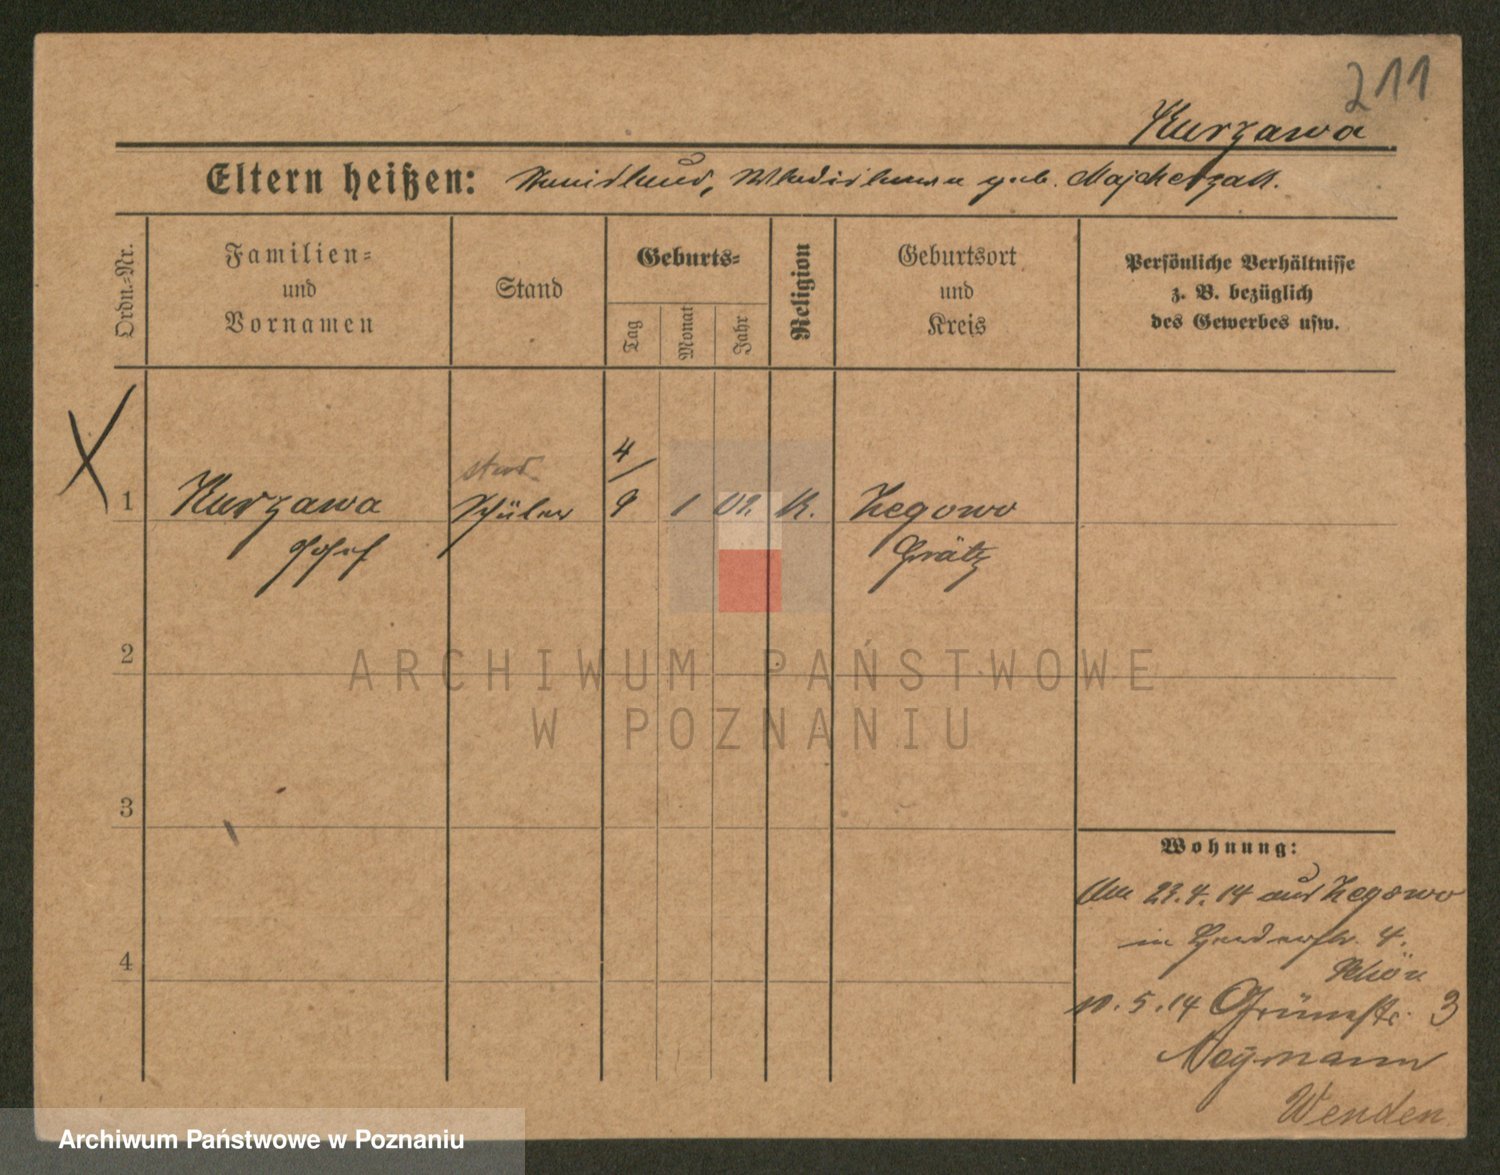 211
Kurzawa
Eltern heißen: Stanislaus, Wladislawa geb. Majcherzak.
Ordn.-Nr.
Familien- und Vornamen
Stand
Geburts-
Tag
Monat
Jahr
Religion
Geburtsort und Kreis
Persönliche Verhältnisse z. B. bezüglich des Gewerbes usw.
stud.
4/
1 Kurzawa Schüler 9 1 02. K. Zegowo
Josef Grätz
ARCHIWUM PAŃSTWOWE
W POZNANIU
2
3
4
Wohnung:
Am 23.4.14 aus Zegowo
in 4.
Schön
10.5.14 Grünstr. 3
Neymann
Wenden
Archiwum Państwowe w Poznaniu